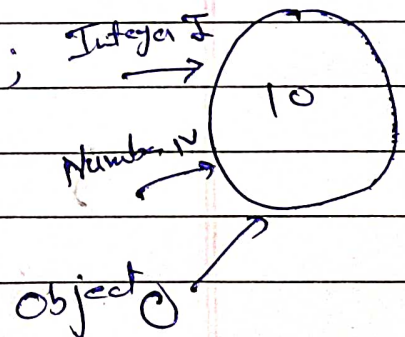 ; Integer I
10
Number N
Object O